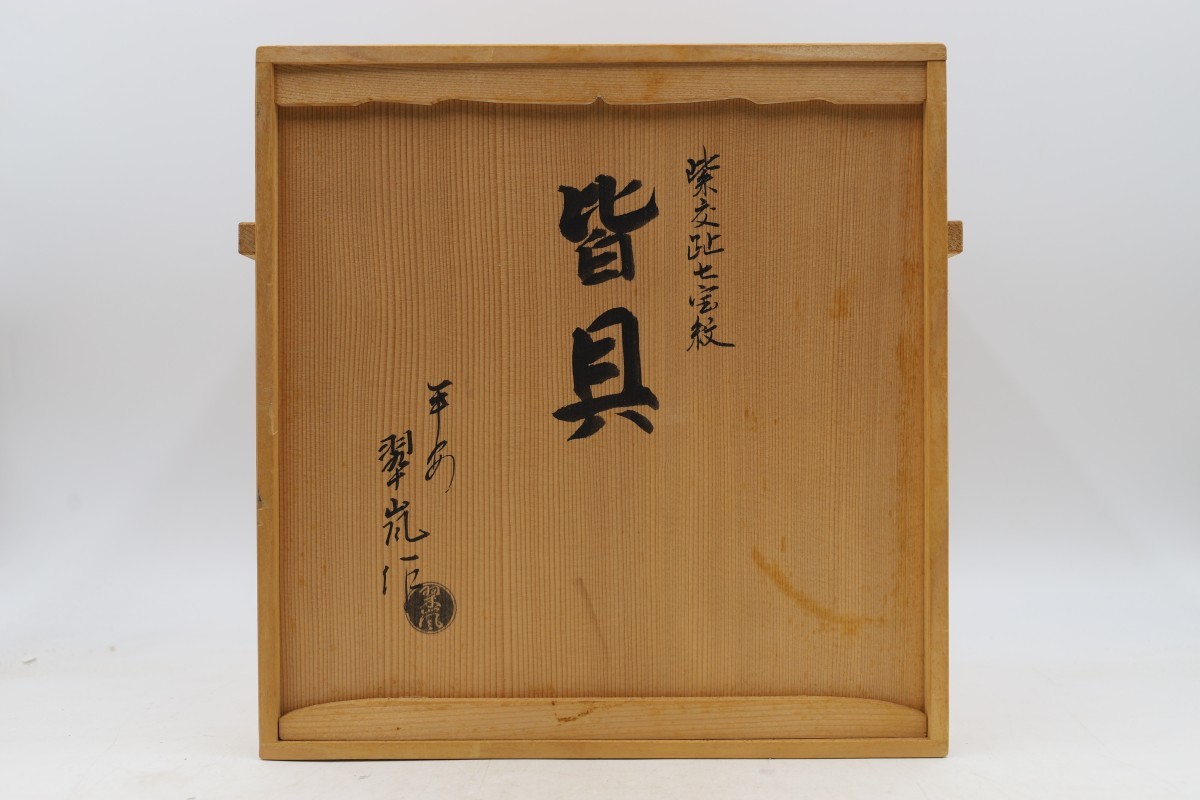 紫交趾七宝紋
皆具
平安
翠嵐作
翠嵐